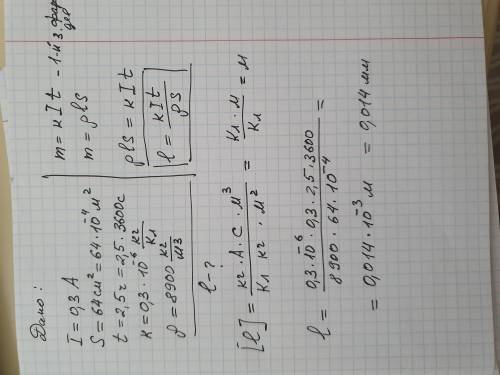 Дано:
I = 0,3 A
S = 64 см² = 64·10⁻⁴ м²
t = 2,5 ч = 2,5·3600 с
к = 0,3·10⁻⁶ кг/Кл
ρ = 8900 кг/м3
l - ?
m = кIt - 1-й з. фарадея
m = ρlS
ρlS = кIt
l = кIt/ρS
[l] = кг·А·с·м³/Кл кг·м² = Кл·м/Кл = м
l = 0,3·10⁻⁶·0,3·2,5·3600/8900·64·10⁻⁴ =
= 0,014·10⁻³ м = 0,014 мм